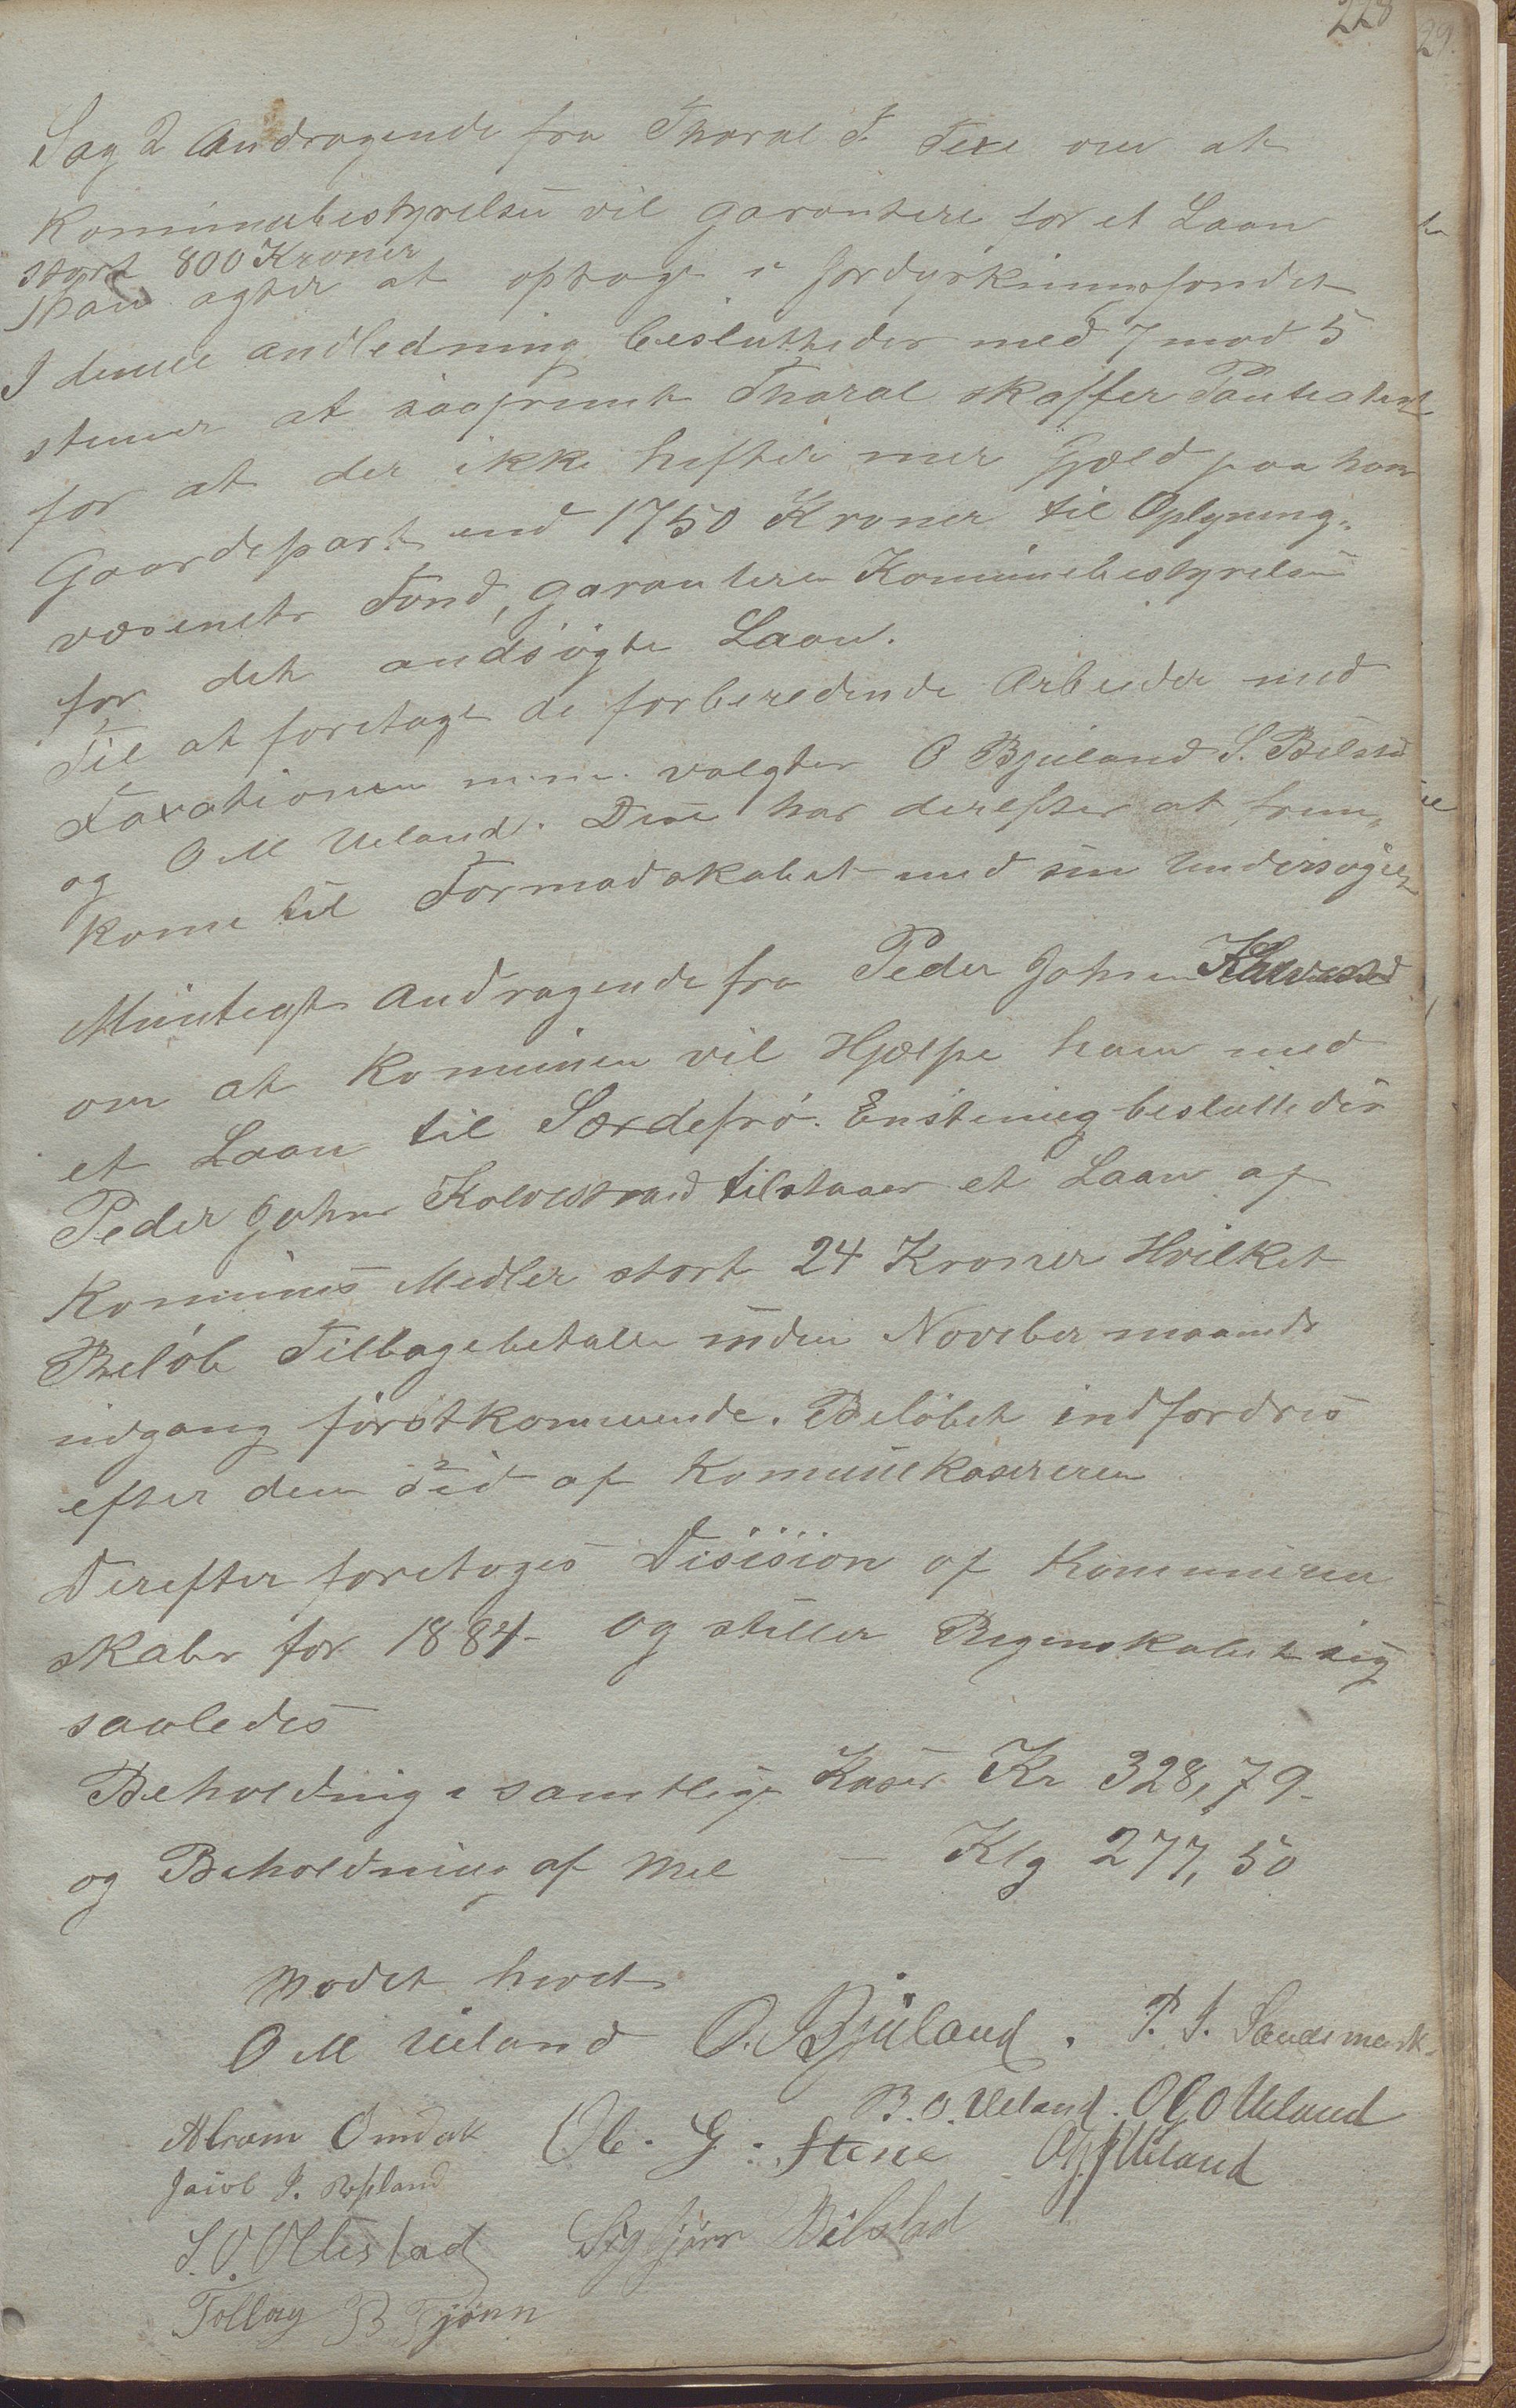 228
29.
Sag 2 Andragende fra Tharal T. Teie om at
Kommunebestyrelsen vil garantere for et Laan
stort 800 Kroner
Han agter at optage i Jordyrkningsfondet
I denne andledning besluttedes med 7 mod 5
stemer at saafremt Tharal skaffer Panteatest
for at der ikke hefter mer Gjæld paa hans
Gaardepart end 1750 Kroner til Oplyning-
væsenets Fond, garanterer Komunebestyrelsen
for det andsøgte Laan.
Til at foretage de forberedende Arbeider med
Taxationen m.m. valgtes O Bjuland S. Bilstad
og O M Ueland. Disse har derefter at frem-
kome til Formadskabet med sin Undersøgelse
Muntligt Andragende fra Peder Johnsen
om at Komunen vil Hjælpe ham med
et Laan til Sædefrø. Enstemig besluttedes
Peder Johns Kolvestvad tilstaaes et Laan af
Komunens Medler stort 24 Kroner Hvilket
Beløb Tilbagebetales inden Noveber maaneds
udgang førstkommende. Beløbet indfordres
efter den Tid af Komunekasereren
Derefter foretoges Disision af Komuneren
skaber for 1884 og stiller Regenskabet sig
saaledes
Beholdning i samtlige Kaser Kr 328,79-
og Beholdning af Mel — Klg 277,50
Mødet hævet
O M Ueland O. Bjuland. P. J. Sandsmark.
B. O. Ueland. O G O Ueland
Abram Omdak Ole. G. Stene Ueland
Jacob J. Røpland
S. O. Ollestad Sigbjørn Bilstad
Tollag B Tjønn